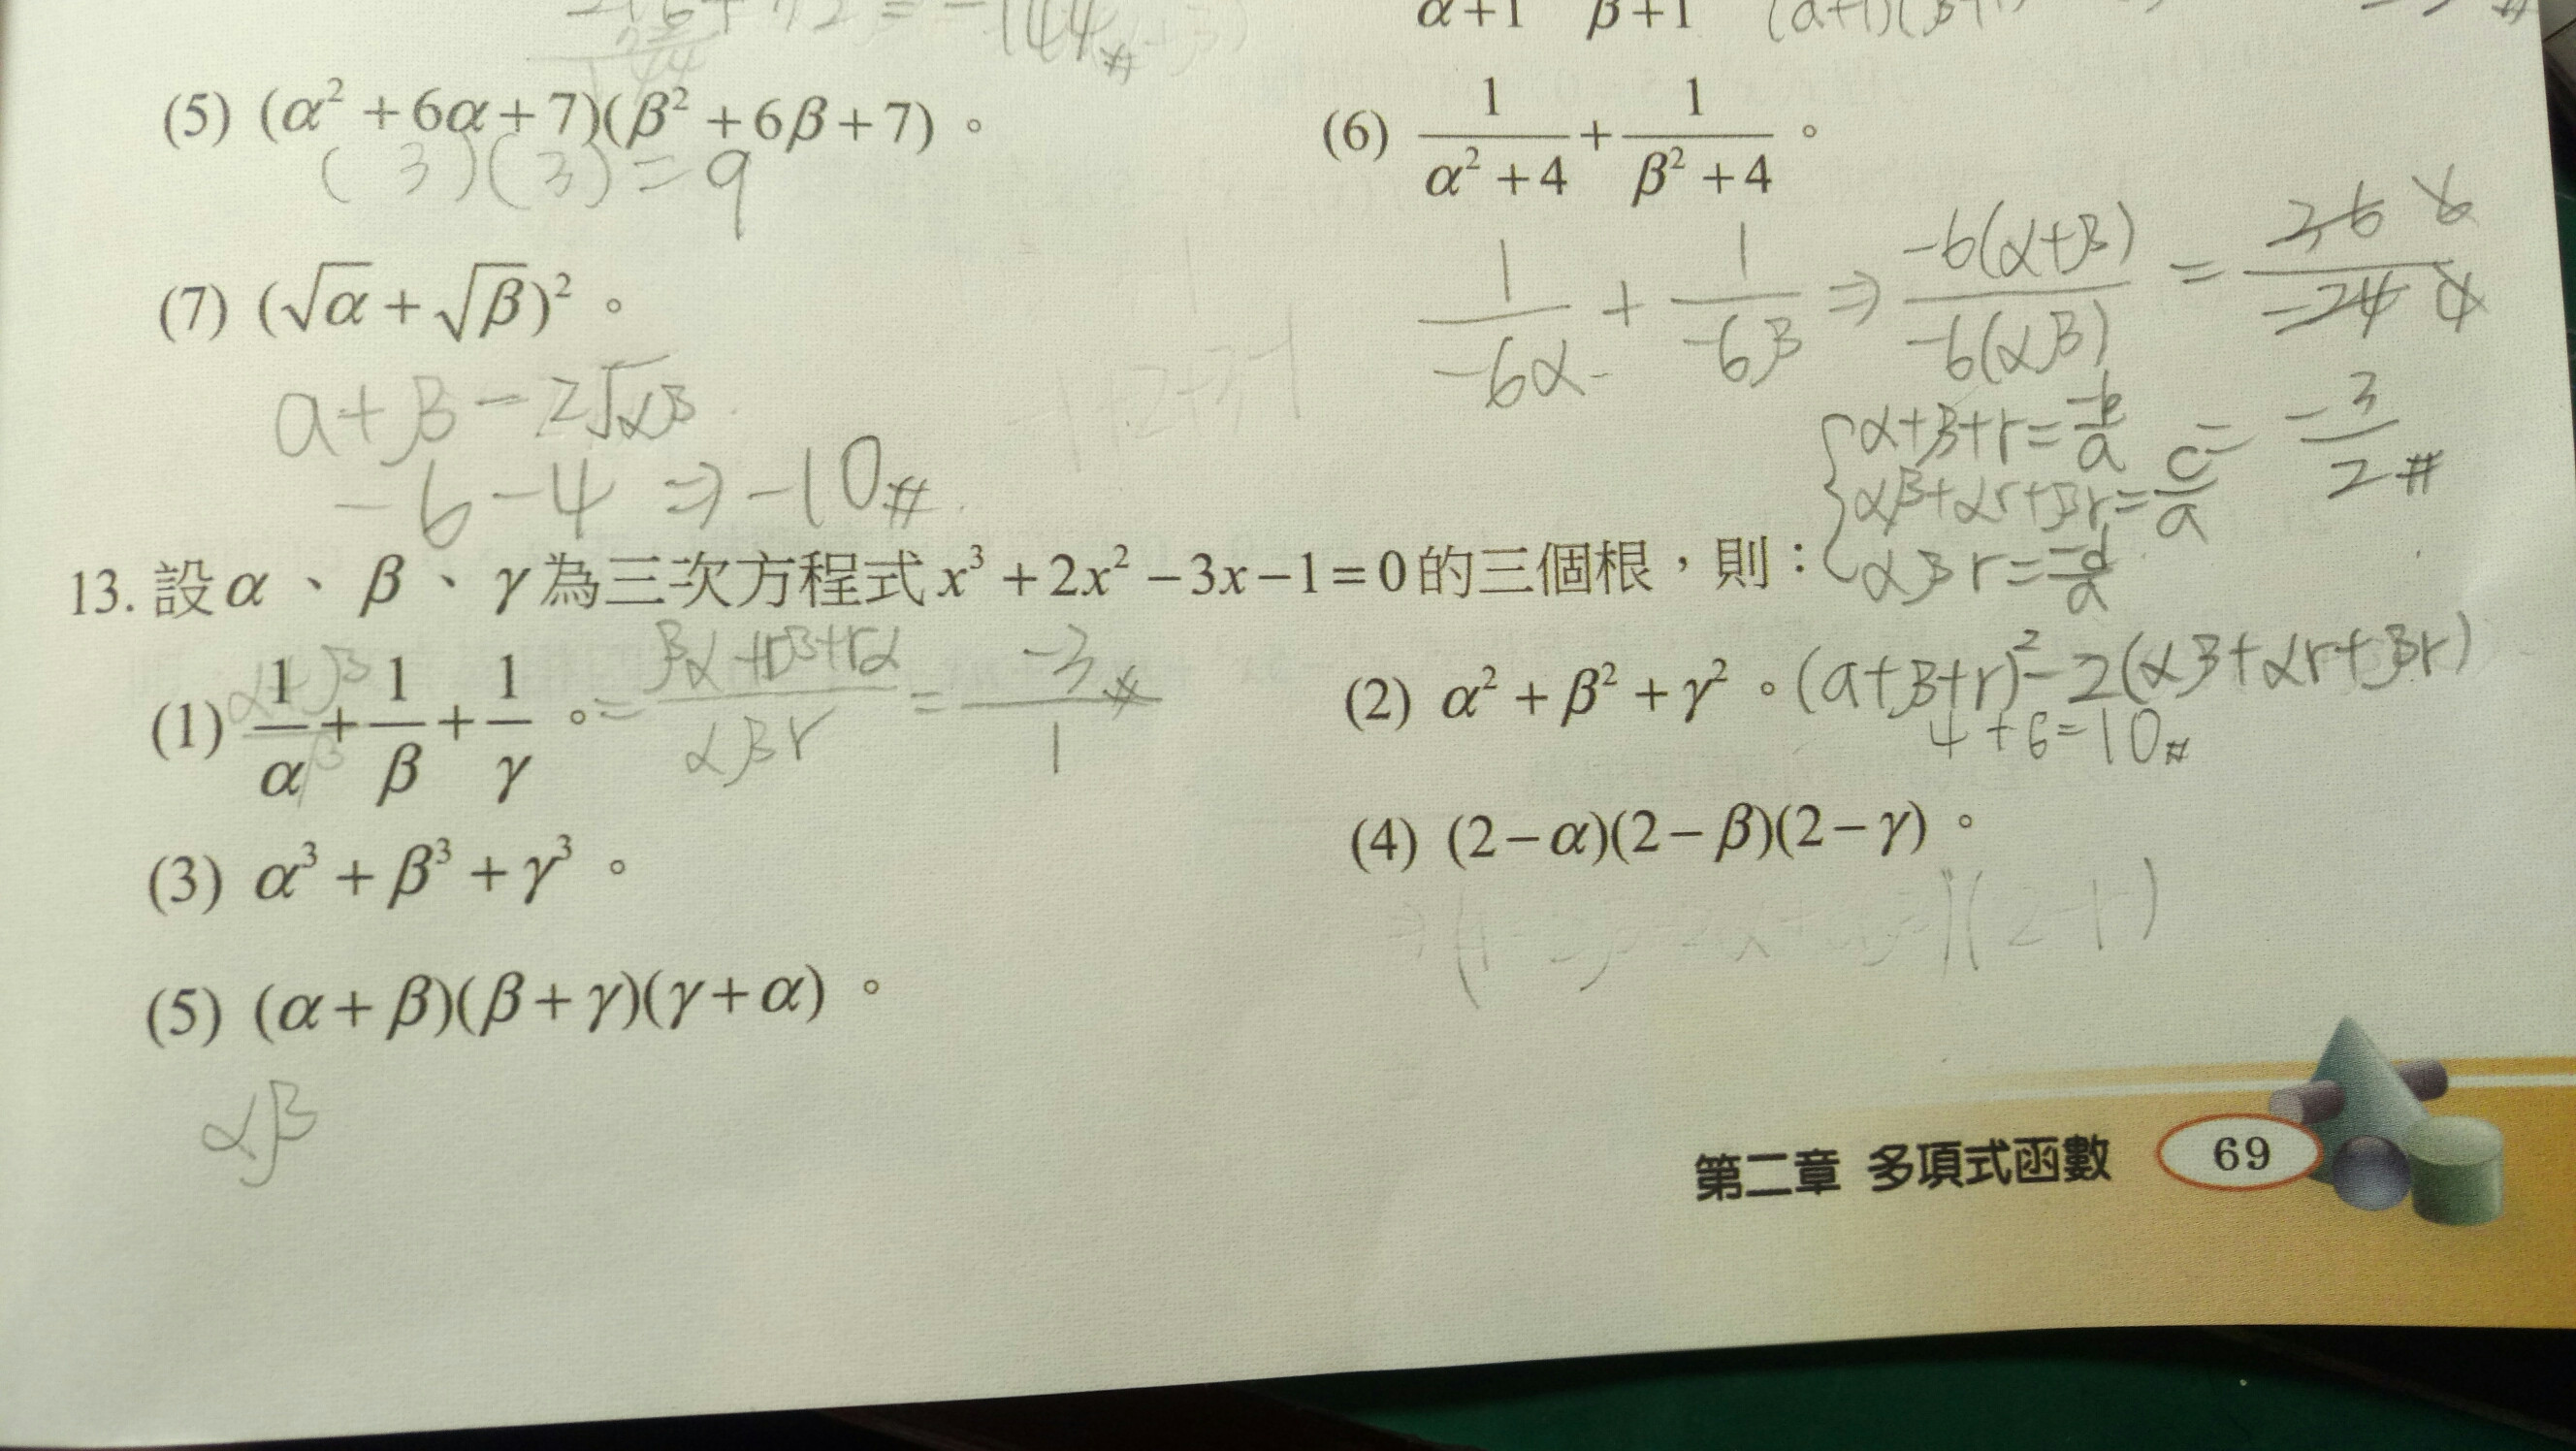 = -144#
α+1 β+1 (a+1)(β+1)
(5) (α² + 6α + 7)(β² + 6β + 7)。
( 3 )( 3 ) = 9
(6) 1/(α² + 4) + 1/(β² + 4)。
1/-6α + 1/-6β ⇒ -6(α+β)/-6(αβ) = 36 6/-24 4
= -3/2 #
(7) (√α + √β)²。
a+β - 2√αβ
-6 - 4 ⇒ -10#
{α+β+r = -b/a
αβ+αr+βr = c/a
αβr = -d/a
13. 設α、β、γ為三次方程式x³ + 2x² − 3x − 1 = 0的三個根，則：
(1) 1/α + 1/β + 1/γ。 = βα+rβ+rα/αβr = -3/1 #
(2) α² + β² + γ²。(a+β+r)² - 2(αβ+αr+βr)
4+6=10#
(3) α³ + β³ + γ³。
(4) (2−α)(2−β)(2−γ)。
(2-r)
(5) (α + β)(β + γ)(γ + α)。
αβ
第二章 多項式函數 69